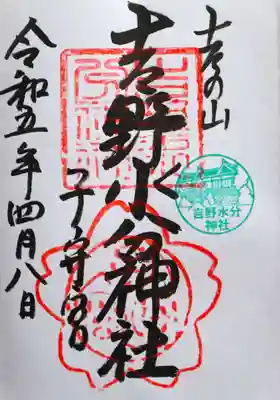 吉の山
吉野水分神社
子守宮
令和五年四月八日
吉野水分
神社